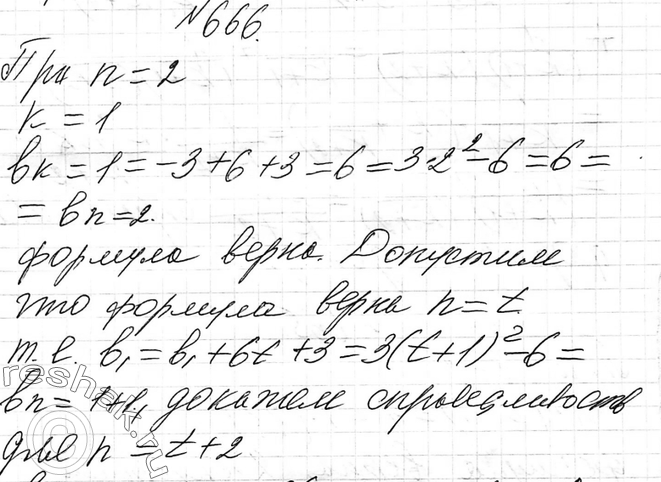 №666.
При n=2
k=1
bk=1=-3+6+3=6=3·2²-6=6=
=bn=2.
формула верна. Допустим
что формула верна n=t
т.е. b₁=b₁+6t+3=3(t+1)²-6=
bn=1+t, докажем справедливость
для n=t+2
reshak.ru